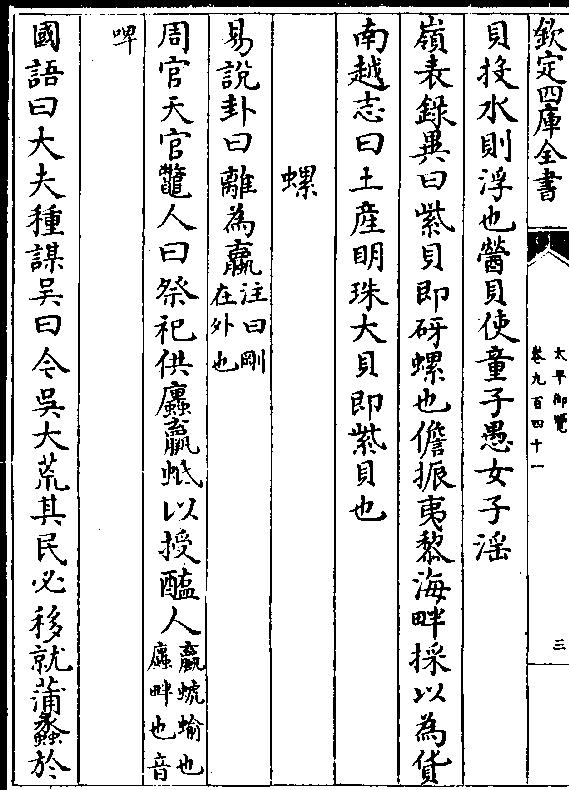 欽定四庫全書
太平御覽
卷九百四十一
三
貝投水則浮也醫貝使童子愚女子淫
嶺表錄異曰紫貝即砑螺也儋振夷黎海畔採以為貨
南越志曰土産明珠大貝即紫貝也
螺
易說卦曰離為蠃注曰剛在外也
周官天官鼈人曰祭祀供蠯蠃蚳以授醢人蠃螔蝓也蠯畔也音
啤
國語曰大夫種謀吳曰令吳大荒其民必移就蒲蠡於